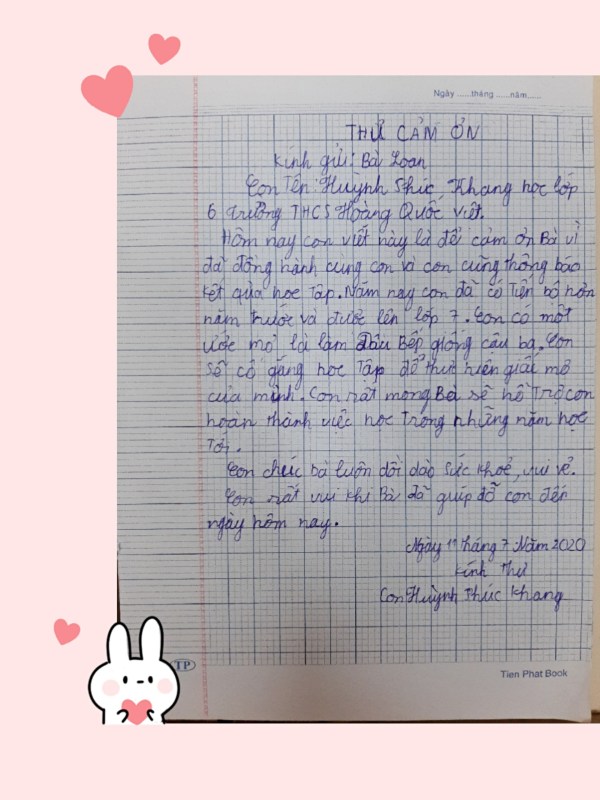 Ngày ......tháng ......năm......
THƯ CẢM ƠN
Kính gửi: Bà Loan
Con Tên: Huỳnh Thúc Khang học lớp
6 trường THCS Hoàng Quốc Việt.
Hôm nay con viết này là để cảm ơn Bà vì
đã đồng hành cùng con và con cũng thông báo
kết quả học tập. Năm nay con đã có Tiến bộ hơn
năm trước và được lên lớp 7. Con có một
ước mơ là làm đầu Bếp giống cậu ba. Con
sẽ cố gắng học Tập để thực hiện giấc mơ
của mình. Con rất mong Bà sẽ hỗ Trợ con
hoàn thành việc học Trong những năm học
Tới.
Con chúc bà luôn dồi dào sức khoẻ, vui vẻ.
Con rất vui khi Bà đã giúp đỡ con đến
ngày hôm nay.
Ngày 11 tháng 7 Năm 2020
Kính Thư
Con Huỳnh Thúc Khang
TP
Tien Phat Book